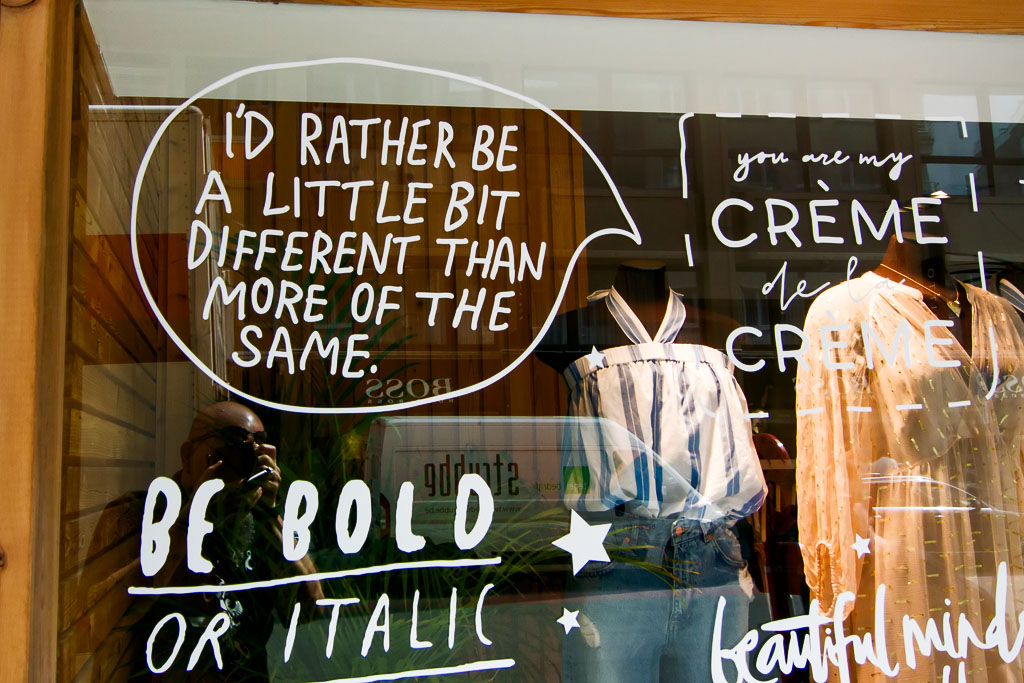 I'D RATHER BE
A LITTLE BIT
DIFFERENT THAN
MORE OF THE
SAME.
you are my
CRÈME
de la
CRÈME
BOSS
strubbe
BE BOLD
OR ITALIC
beautiful minds